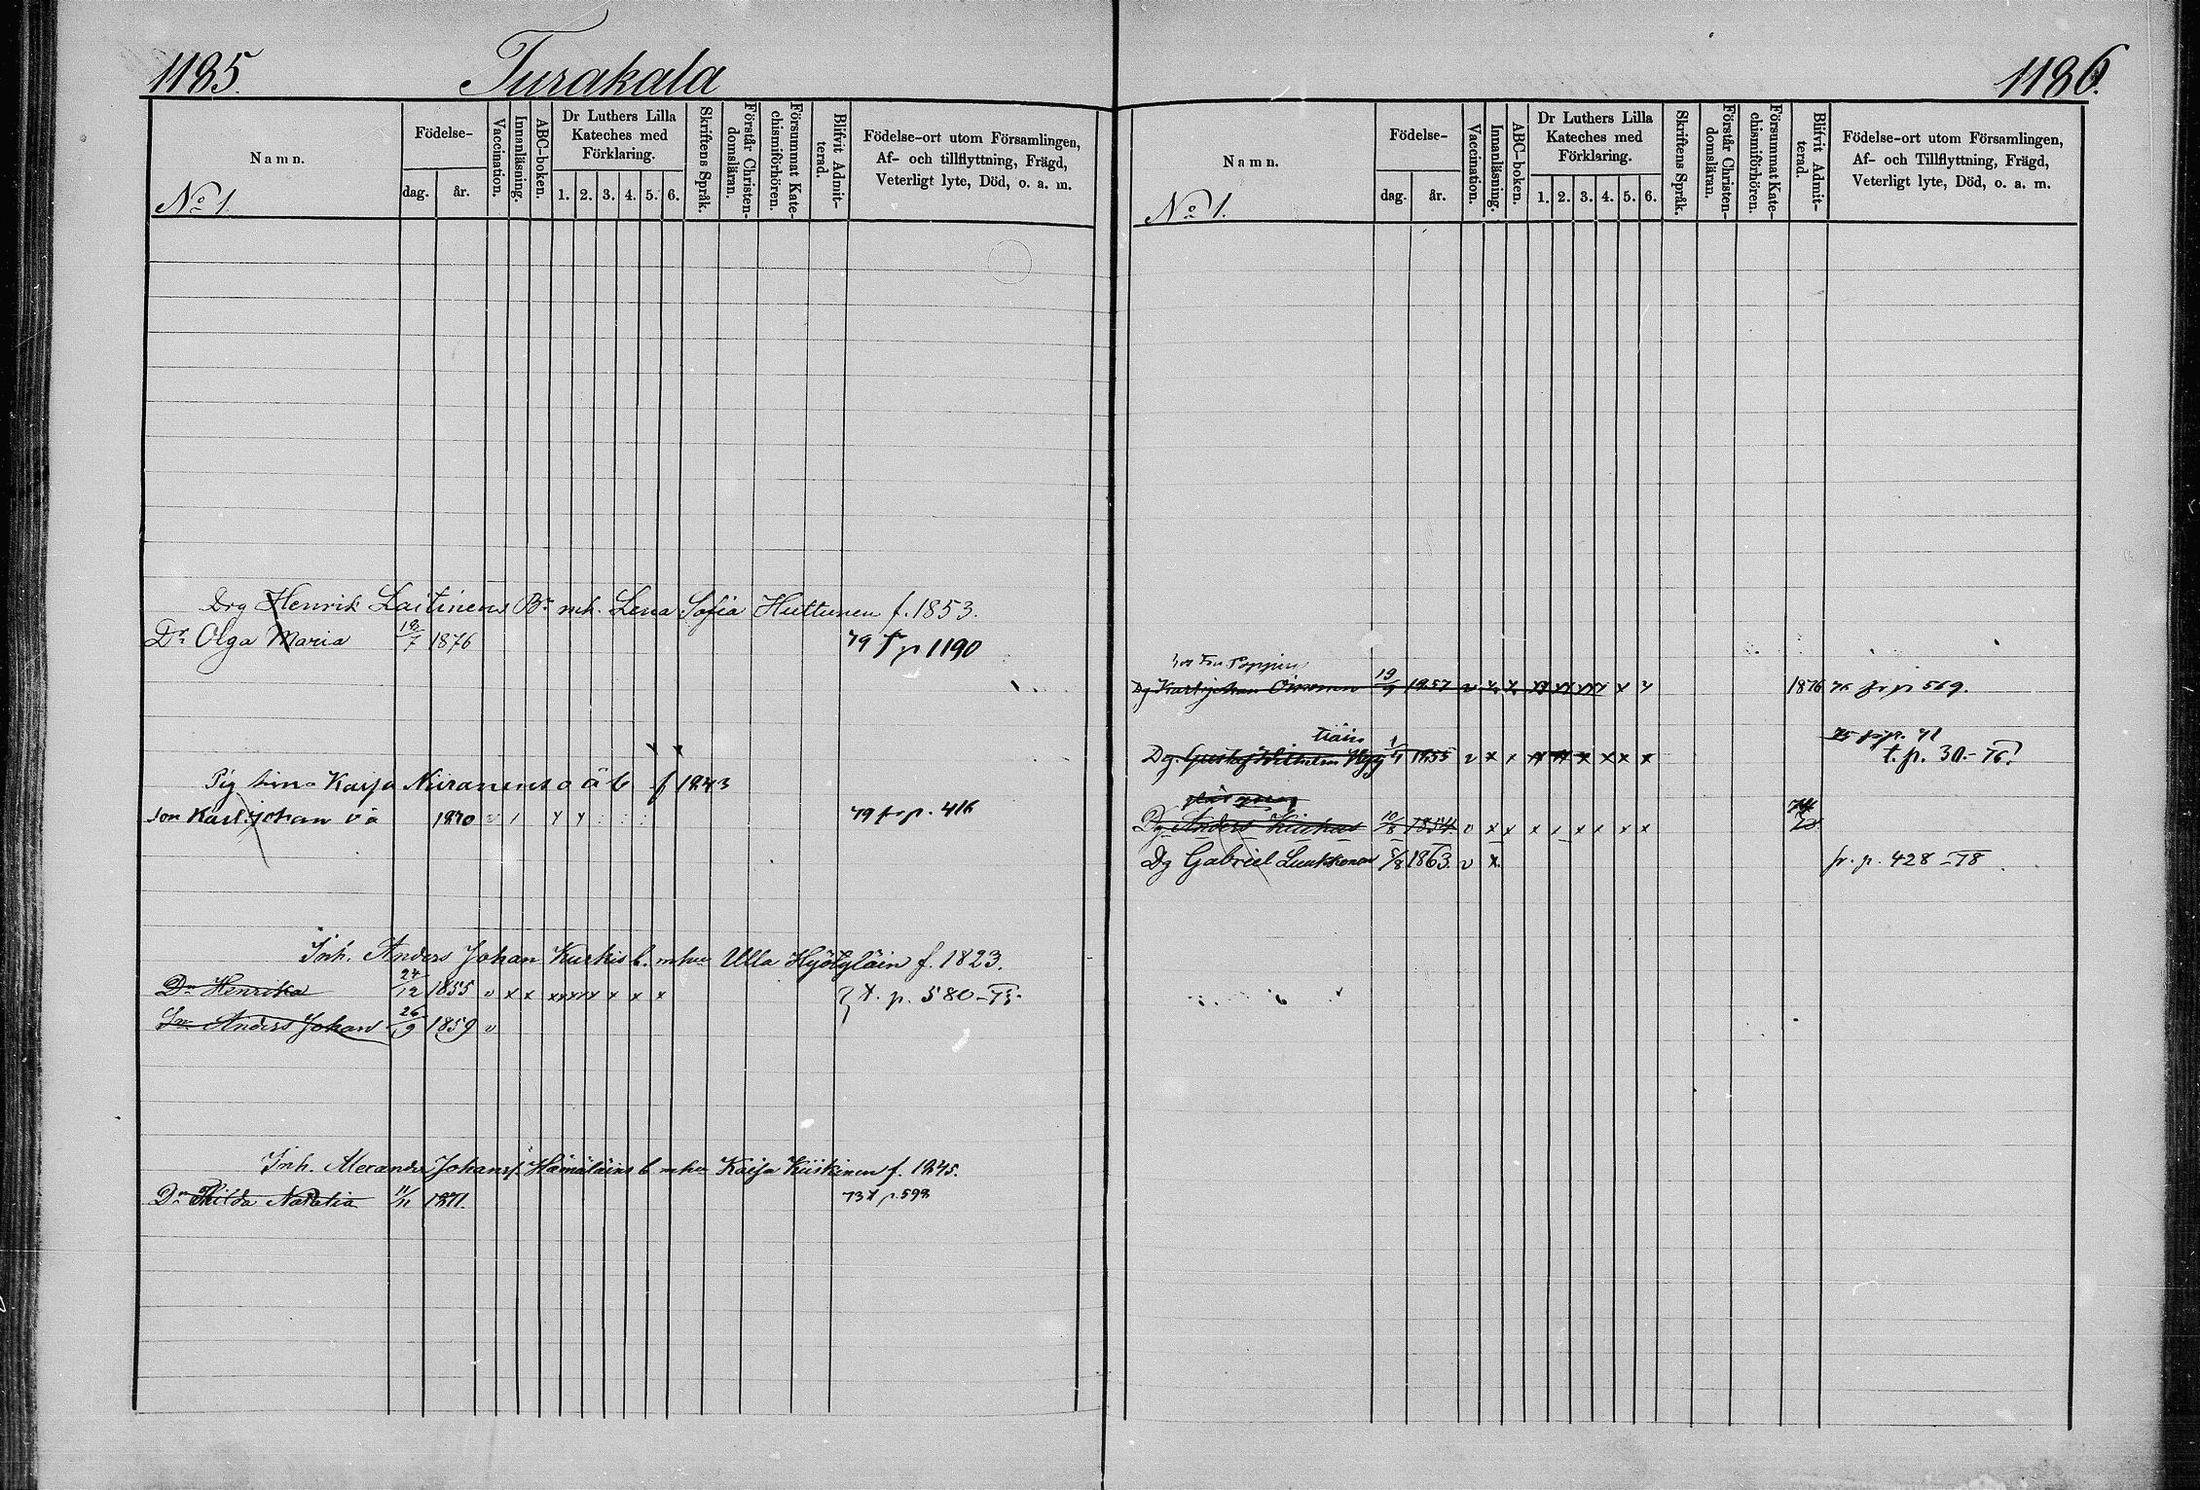 1185.
Turakala
Namn.
No 1.
Födelse-
dag.
år.
Vaccination.
Innanläsning.
ABC-boken.
Dr Luthers Lilla
Kateches med
Förklaring.
1. 2. 3. 4. 5. 6.
Skriftens Språk.
Förstår Christen-
domsläran.
Försummat Kate-
chismiförhören.
Blifvit Admit-
terad.
Födelse-ort utom Församlingen,
Af- och tillflyttning, Frägd,
Veterligt lyte, Död, o. a. m.
Drg Henrik Laitinens Br mh. Lena Sofia Huttunen f. 1853.
Dr Olga Maria 18/7 1876 79 f p 1190
Pig Kaisa Niiranens o ä b f 1843
Son Karl Johan 1870 v 79 fr p. 416
Inh. Anders Johan Kurkis b. mhu Ulla f. 1823.
Dr Henrika 24/12 1855 v x x xx xx x x x x t. p. 580-73.
Sn Anders Johan 26/9 1859 v
Inh. Alexander Johans s. Hämäläins b. mhu Kaisa Kiiskinen f. 1845.
Dr Hilda Natalia 11/11 1871. 73 t p. 598
1186.
Namn.
No 1.
Födelse-
dag.
år.
Vaccination.
Innanläsning.
ABC-boken.
Dr Luthers Lilla
Kateches med
Förklaring.
1. 2. 3. 4. 5. 6.
Skriftens Språk.
Förstår Christen-
domsläran.
Försummat Kate-
chismiförhören.
Blifvit Admit-
terad.
Födelse-ort utom Församlingen,
Af- och Tillflyttning, Frägd,
Veterligt lyte, Död, o. a. m.
Dg Karl Johan Oinonen 19/9 1857 v 1876 76 fr p 569.
tiäin
Dg. Gustaf Wilhelm 1855 v x x x x x x x x t. p. 30.-76.
Dg Anders 10/8 1854 v x x x x x x x x
Dg Gabriel Luukkonen 5/8 1863. v x fr. p. 428-78